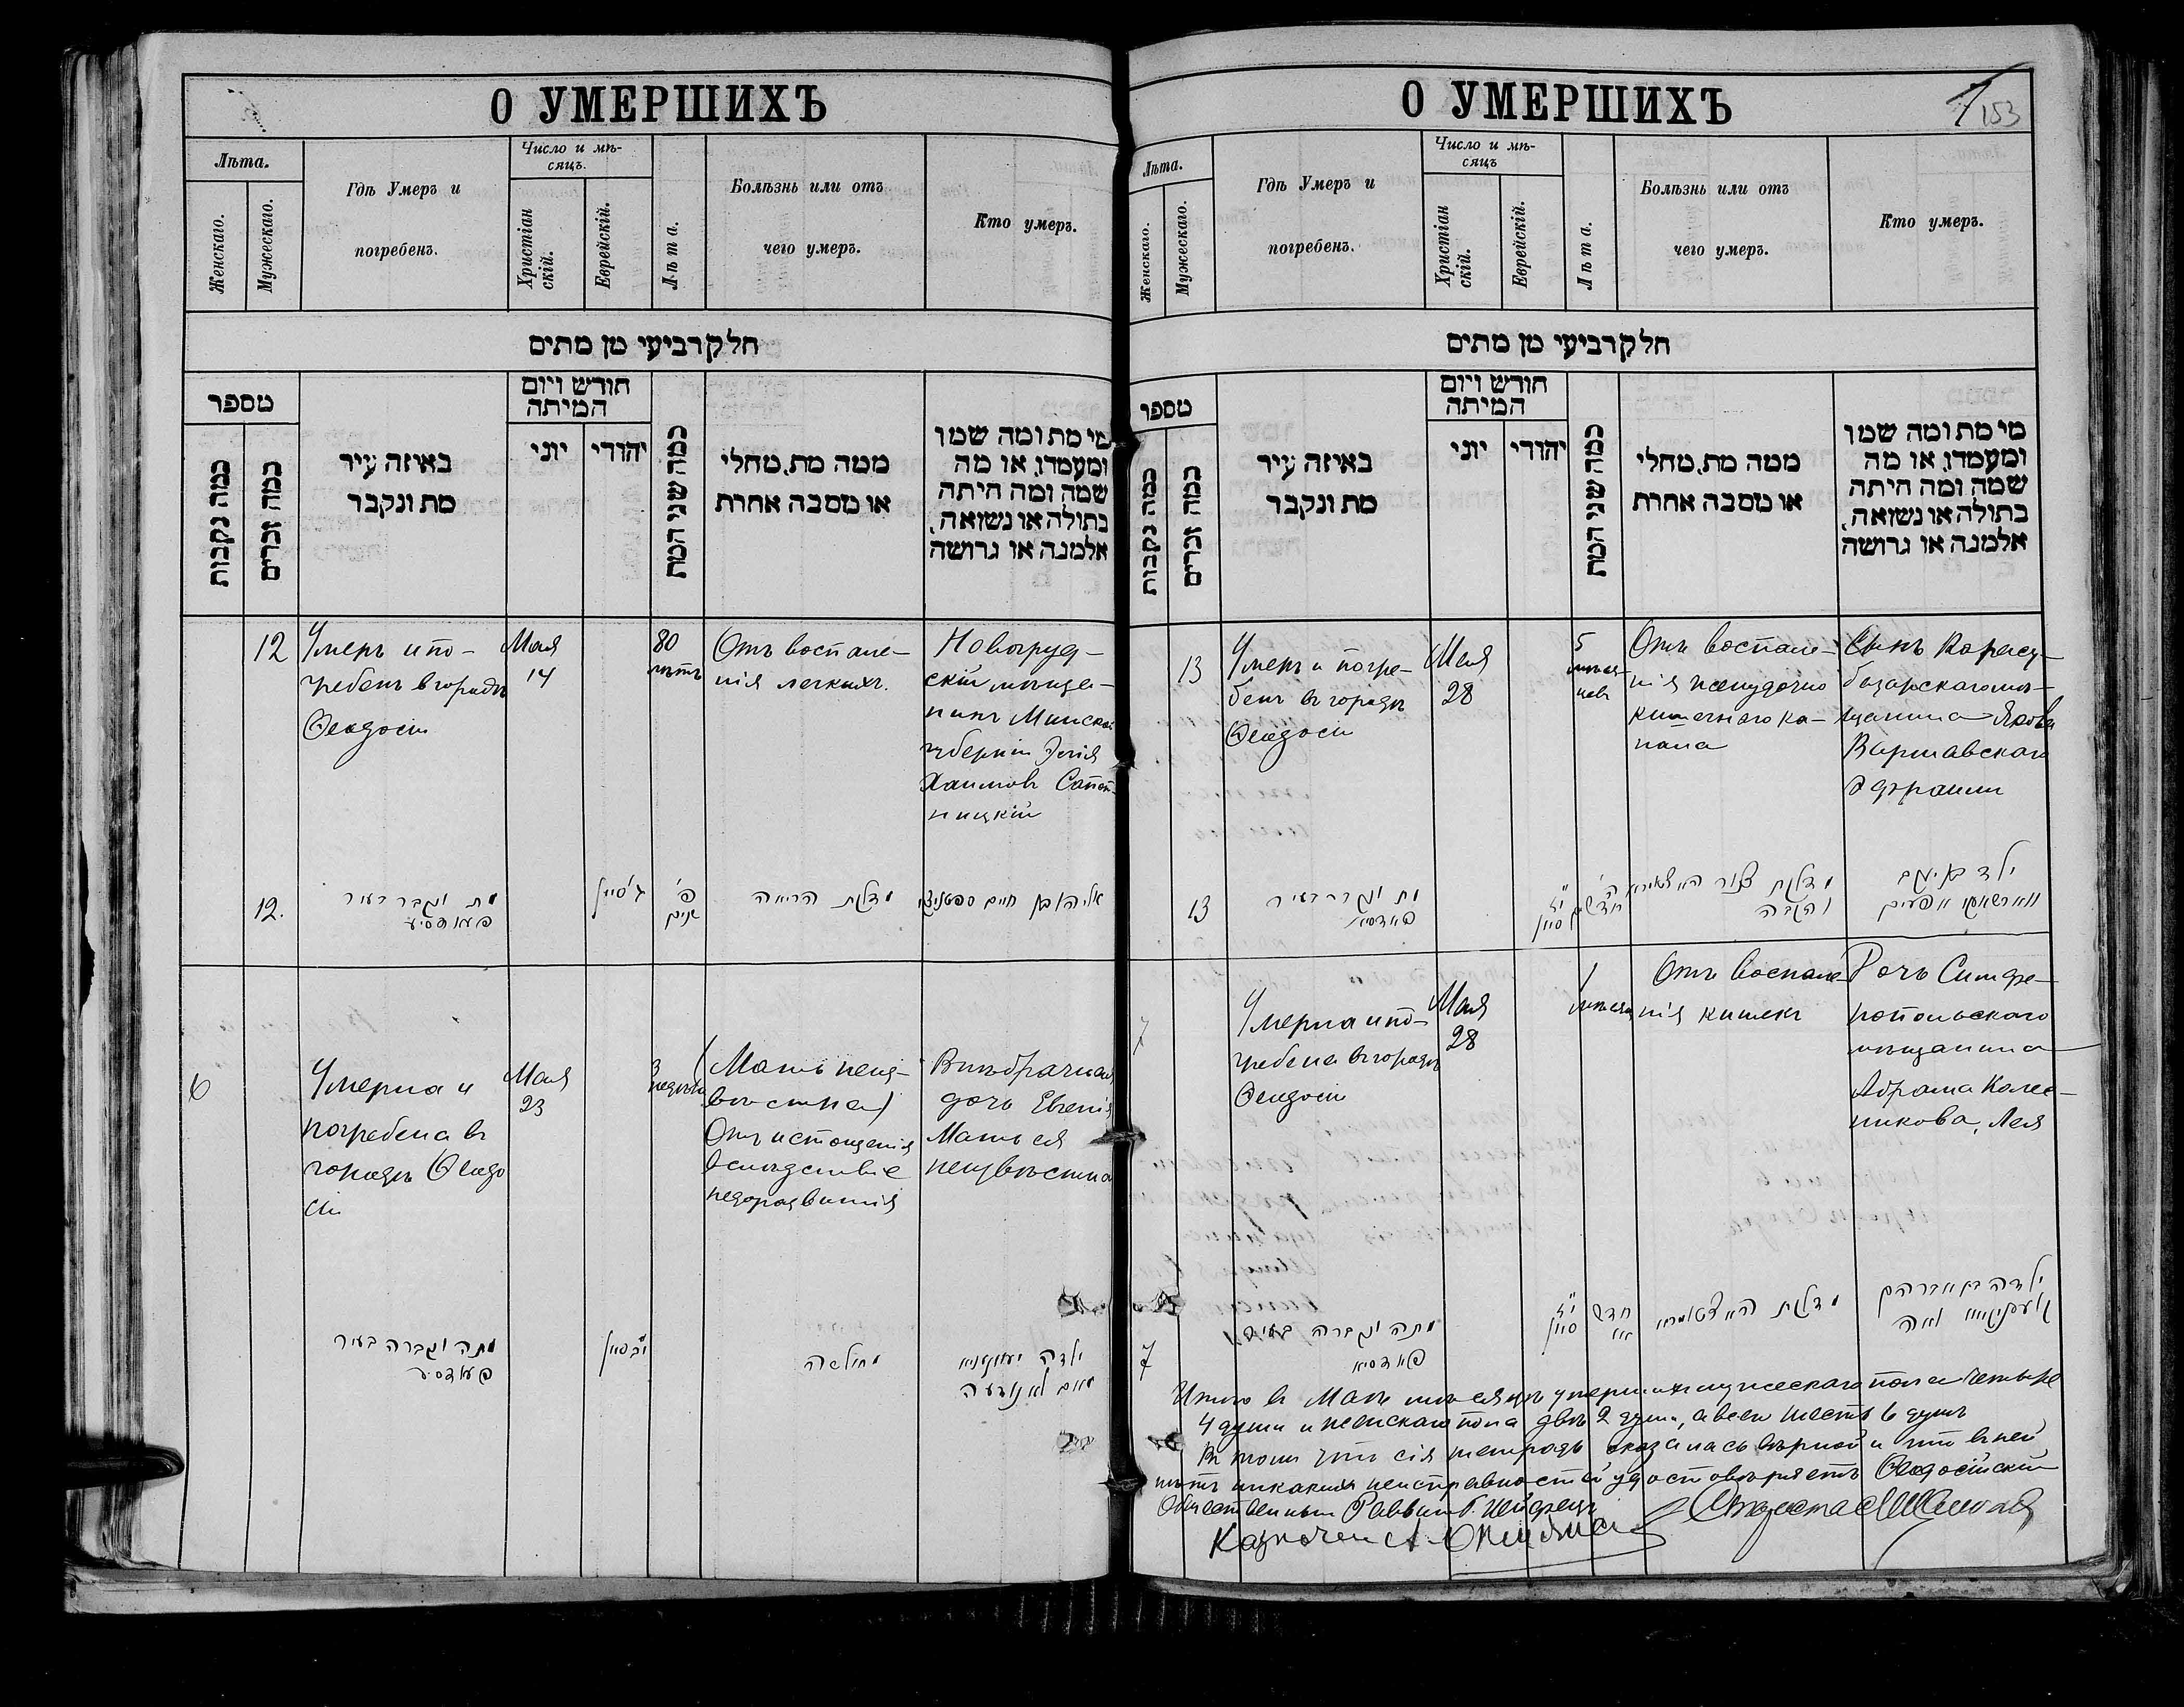 О УМЕРШИХЪ
Лѣта.
Женскаго.
Мужескаго.
Гдѣ Умеръ и
погребенъ.
Число и мѣ-
сяцъ.
Христіан
скій.
Еврейскій.
Лѣта.
Болѣзнь или отъ
чего умеръ.
Кто умеръ.
חלק רביעי מן מתים
מספר
כמה נקבות
כמה זכרים
באיזה עיר
מת ונקבר
חודש ויום
המיתה
יוני
יהודי
כמה שני המת
ממה מת, מחלי
או מסבה אחרת
מי מת ומה שמו
ומעמדו, או מה
שמה ומה היתה
בתולה או נשואה,
אלמנה או גרושה
12
Умеръ и по-
гребенъ в городѣ
Ѳеодосіи
Мая
14
80
лѣтъ
Отъ воспале-
нія легкихъ.
Новогруд-
скій мѣща-
нинъ Минской
губерніи Элія
Хаимовъ
12.
מת ונקבר בעיר
ג' סיון
פ'
שנים
מדלקת הריאה
אליהו בן חיים
6
Умерла и
погребена въ
городѣ Ѳеодо
сіи
Мая
23
3
недѣли
(Мать неиз-
вѣстна)
Отъ истощенія
вслѣдствіе
недоразвитія
Внѣбрачная
дочь Евгенія
Мать ея
неизвѣстна
מתה ונקברה בעיר
י"ב סיון
מחולשה
ילדה
לא נודעה
О УМЕРШИХЪ
153
Лѣта.
Женскаго.
Мужескаго.
Гдѣ Умеръ и
погребенъ.
Число и мѣ-
сяцъ
Христіан
скій.
Еврейскій.
Лѣта.
Болѣзнь или отъ
чего умеръ.
Кто умеръ.
חלק רביעי מן מתים
מספר
כמה נקבות
כמה זכרים
באיזה עיר
מת ונקבר
חודש ויום
המיתה
יוני
יהודי
כמה שני המת
ממה מת, מחלי
או מסבה אחרת
מי מת ומה שמו
ומעמדו, או מה
שמה ומה היתה
בתולה או נשואה,
אלמנה או גרושה
13
Умеръ и погре-
бенъ въ городѣ
Ѳеодосіи
Мая
28
5
мѣся-
цевъ
Отъ воспале-
нія желудочно
кишечнаго ка-
нала
Сынъ Карасу-
базарскаго мѣ-
щанина Якова
Варшавскаго
Эфраимъ
13
מת ונקבר בעיר
י"ז
סיון
ה'
חדשים
מדלקת
והקבה
ילד בן יעקב
7
Умерла и по-
гребена въ городѣ
Ѳеодосіи
Мая
28
1
мѣсяцъ
Отъ воспале-
нія кишекъ
Дочь Симфе-
ропольскаго
мѣщанина
Абрама Колес-
никова, Лея
7
מתה ונקברה בעיר
י"ז
סיון
חדש
מדלקת
ילדה בת אברהם
לאה
Итого въ Маѣ мѣсяцѣ умерших мужескаго пола четыре
4 души и женскаго пола двѣ 2 души, а всего шесть 6 душъ
Въ томъ что сія тетрадь оказалась вѣрной и что въ ней
нѣтъ никакихъ неисправностей удостовѣряетъ Ѳеодосійскій
Общественный Раввинъ
Казначей
Староста